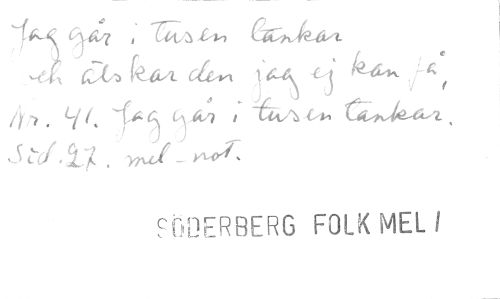 Jag går i tusen tankar
och älskar den jag ej kan få,
Nr. 41. Jag går i tusen tankar.
Sid. 27. mel-not.
SÖDERBERG FOLK MEL I